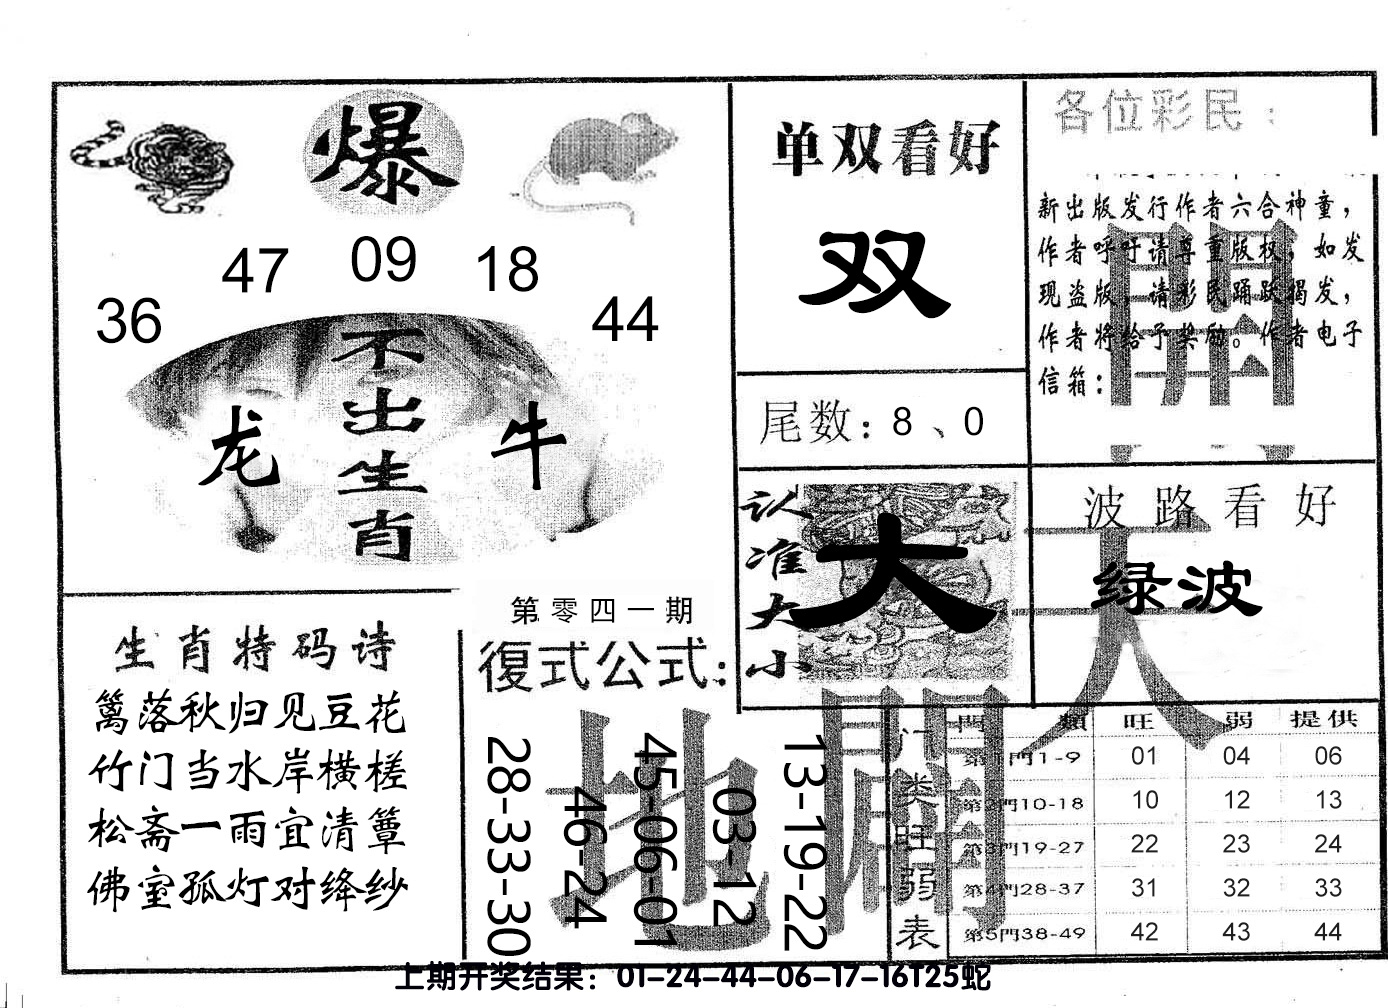 爆
36 47 09 18 44
不出生肖
龙 牛
单双看好
双
尾数：8、0
各位彩民：
新出版发行作者六合神童，
作者呼吁请尊重版权，如发
现盗版，请彩民踊跃揭发，
作者将给予奖励。作者电子
信箱：
認准大小
大
波路看好
绿波
生肖特码诗
篱落秋归见豆花
竹门当水岸横槎
松斋一雨宜清簟
佛室孤灯对绛纱
第零四一期
復式公式：
28-33-30
46-24
45-06-01
03-12
13-19-22
天
地
開
開
门类旺弱表
門類 旺 弱 提供
第1門1-9 01 04 06
第2門10-18 10 12 13
第3門19-27 22 23 24
第4門28-37 31 32 33
第5門38-49 42 43 44
上期开奖结果：01-24-44-06-17-16T25蛇